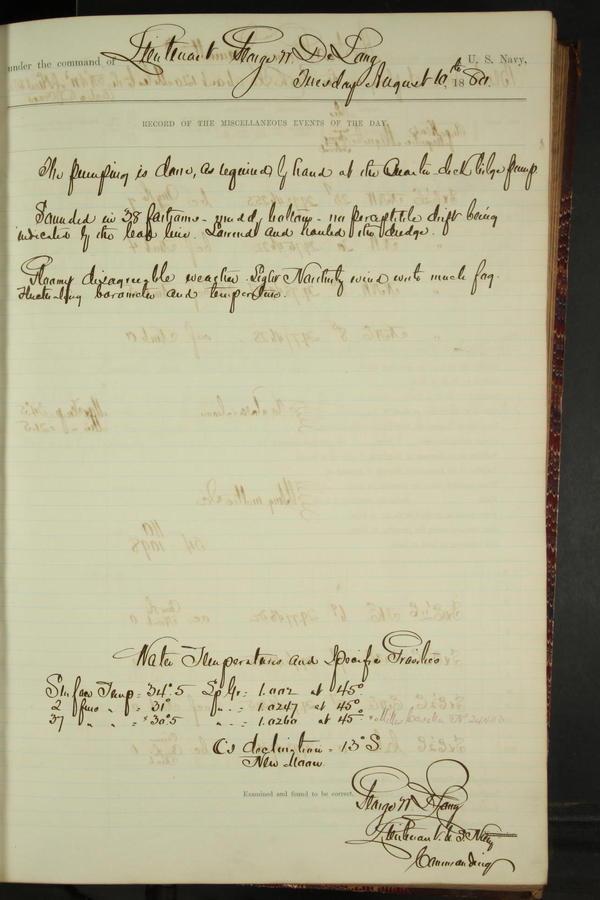 under the command of Lieutenant George W. De Long U. S. Navy,
Tuesday August 10th 1880
RECORD OF THE MISCELLANEOUS EVENTS OF THE DAY.
The pumping is done, as required by hand at the Quarter deck bilge pump.
Sounded in 38 fathoms - muddy bottom - no perceptible drift being
indicated by the lead line. Lowered and hauled the dredge.
Gloomy disagreeable weather. Light Northerly wind with much fog.
Fluctuating barometer and temperature.
Water Temperatures and Specific Gravities
Surface Temp = 34°.5 Sp Gr = 1.002 at 45°
2 fms " = 31° " " = 1.0247 at 45°
37 " " = 30°5 " " = 1.0260 at 45°
C's declination = 13° S.
New Moon
Examined and found to be correct.
George W. De Long
Lieutenant U.S. Navy
Commanding